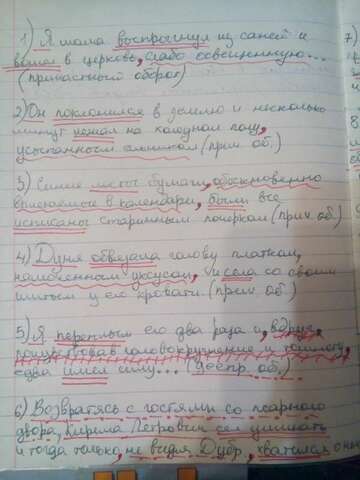 1) Я тома воспрыгнул из саней и
вошёл в церковь, слабо освещённую...
(причастный оборот)
2) Он поклонился в землю и несколько
минут лежал на холодном полу,
усыпанным ельником (прич. об.)
3) Синие листы бумаги, обыкновенно
вклеиваемые в календари, были все
исписаны старинным почерком (прич. об.)
4) Дуня обвязала голову платком,
намоченным уксусом, и села со своим
шитьём у его кровати. (прич. об.)
5) Я переплыл его два раза и, вдруг
почувствовав головокружение и тошноту,
едва имел силу... (деепр. об.)
6) Возвратясь с гостями со псарного
двора, Кирила Петрович сел ужинать
и тогда только, не видя Дубр, хватился о нём
7)
8